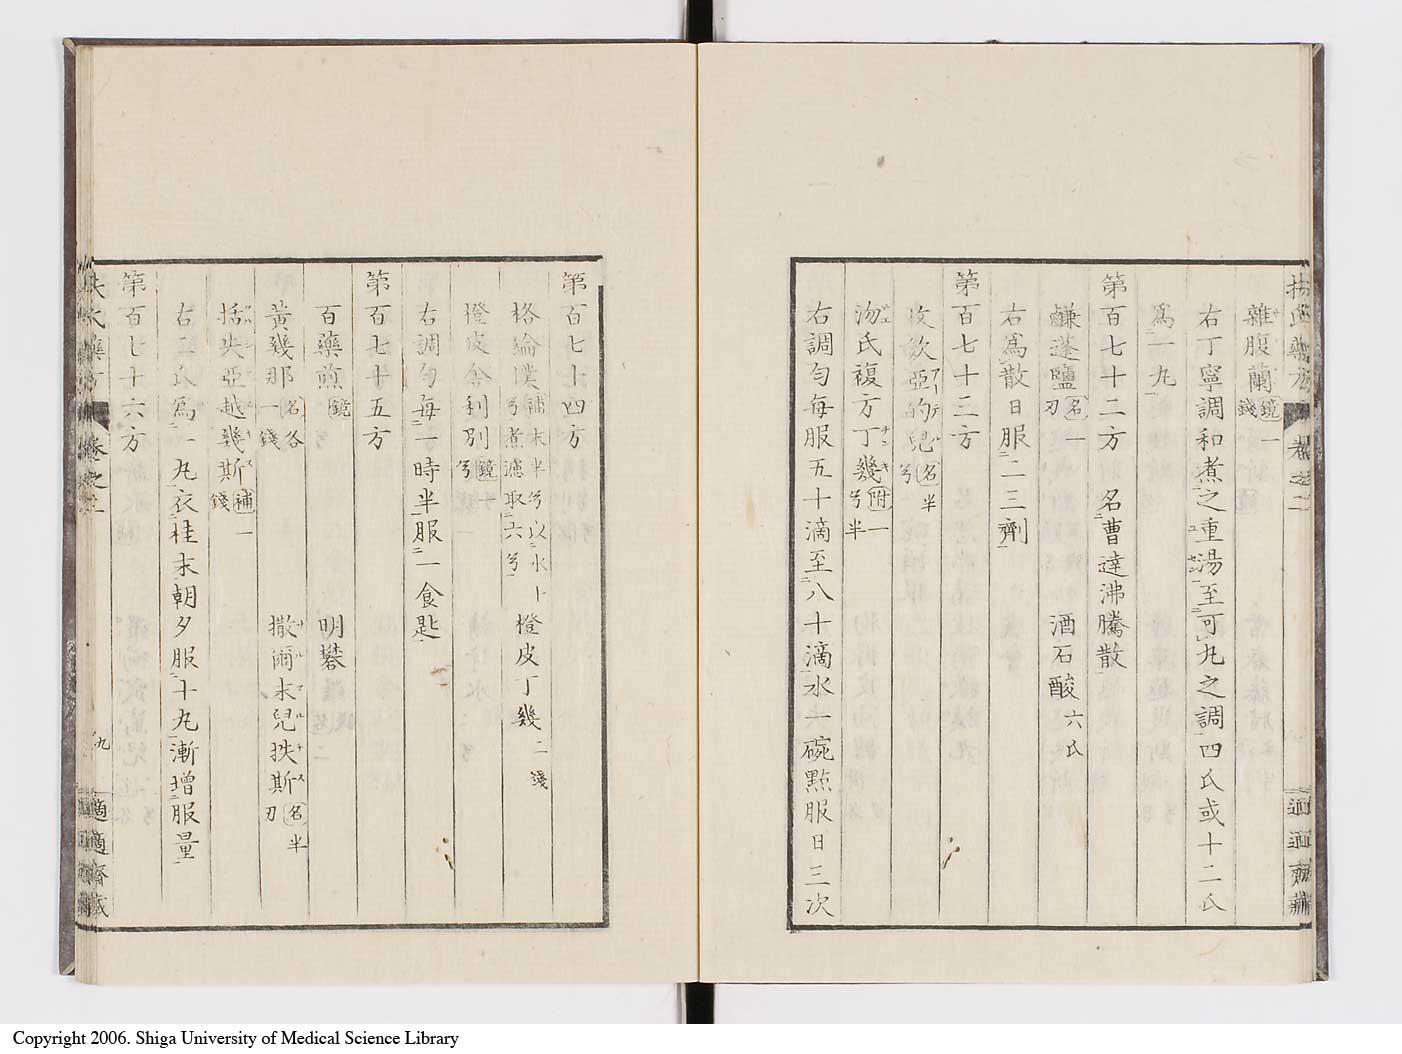 扶氏藥方 卷之二 適適齋藏
雜腹蘭 鏡一錢
右丁寧調和煮之重湯至可丸之調四氏或十二氏
爲一丸
第百七十二方 名曹達沸騰散
鹹蓬鹽 名一刃 酒石酸 六氏
右爲散日服二三劑
第百七十三方
的兒 名半兮
氏複方丁幾 附一兮半
右調勻每服五十滴至八十滴水一碗點服日三次
第百七十四方
格綸僕 補末半兮以水煮濾取六兮 橙皮丁幾 二錢
橙皮舍利別 鏡兮
右調勻每一時半服一食匙
第百七十五方
百藥煎 鏡 明礬
黃幾那 名各一錢 撒爾末兒扶斯 名半刃
括失亞越幾斯 補一錢
右五氏爲一丸衣桂末朝夕服十丸漸增服量
第百七十六方
扶氏藥方 卷之二 九 適適齋藏
Copyright 2006. Shiga University of Medical Science Library